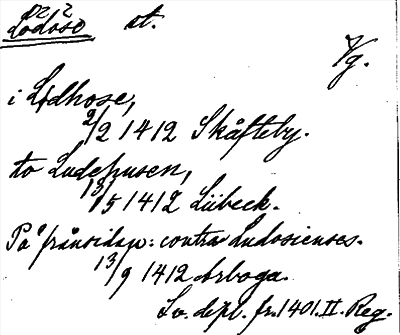 Lödöse st.
V/g.
i Lødhose,
2/2 1412 Skåfteby.
to Ludehusen,
13/5 1412 Lübeck.
På frånsidan: contra Ludosienses.
13/9 1412 Arboga.
Sv. dipl. fr. 1401. II. Reg.